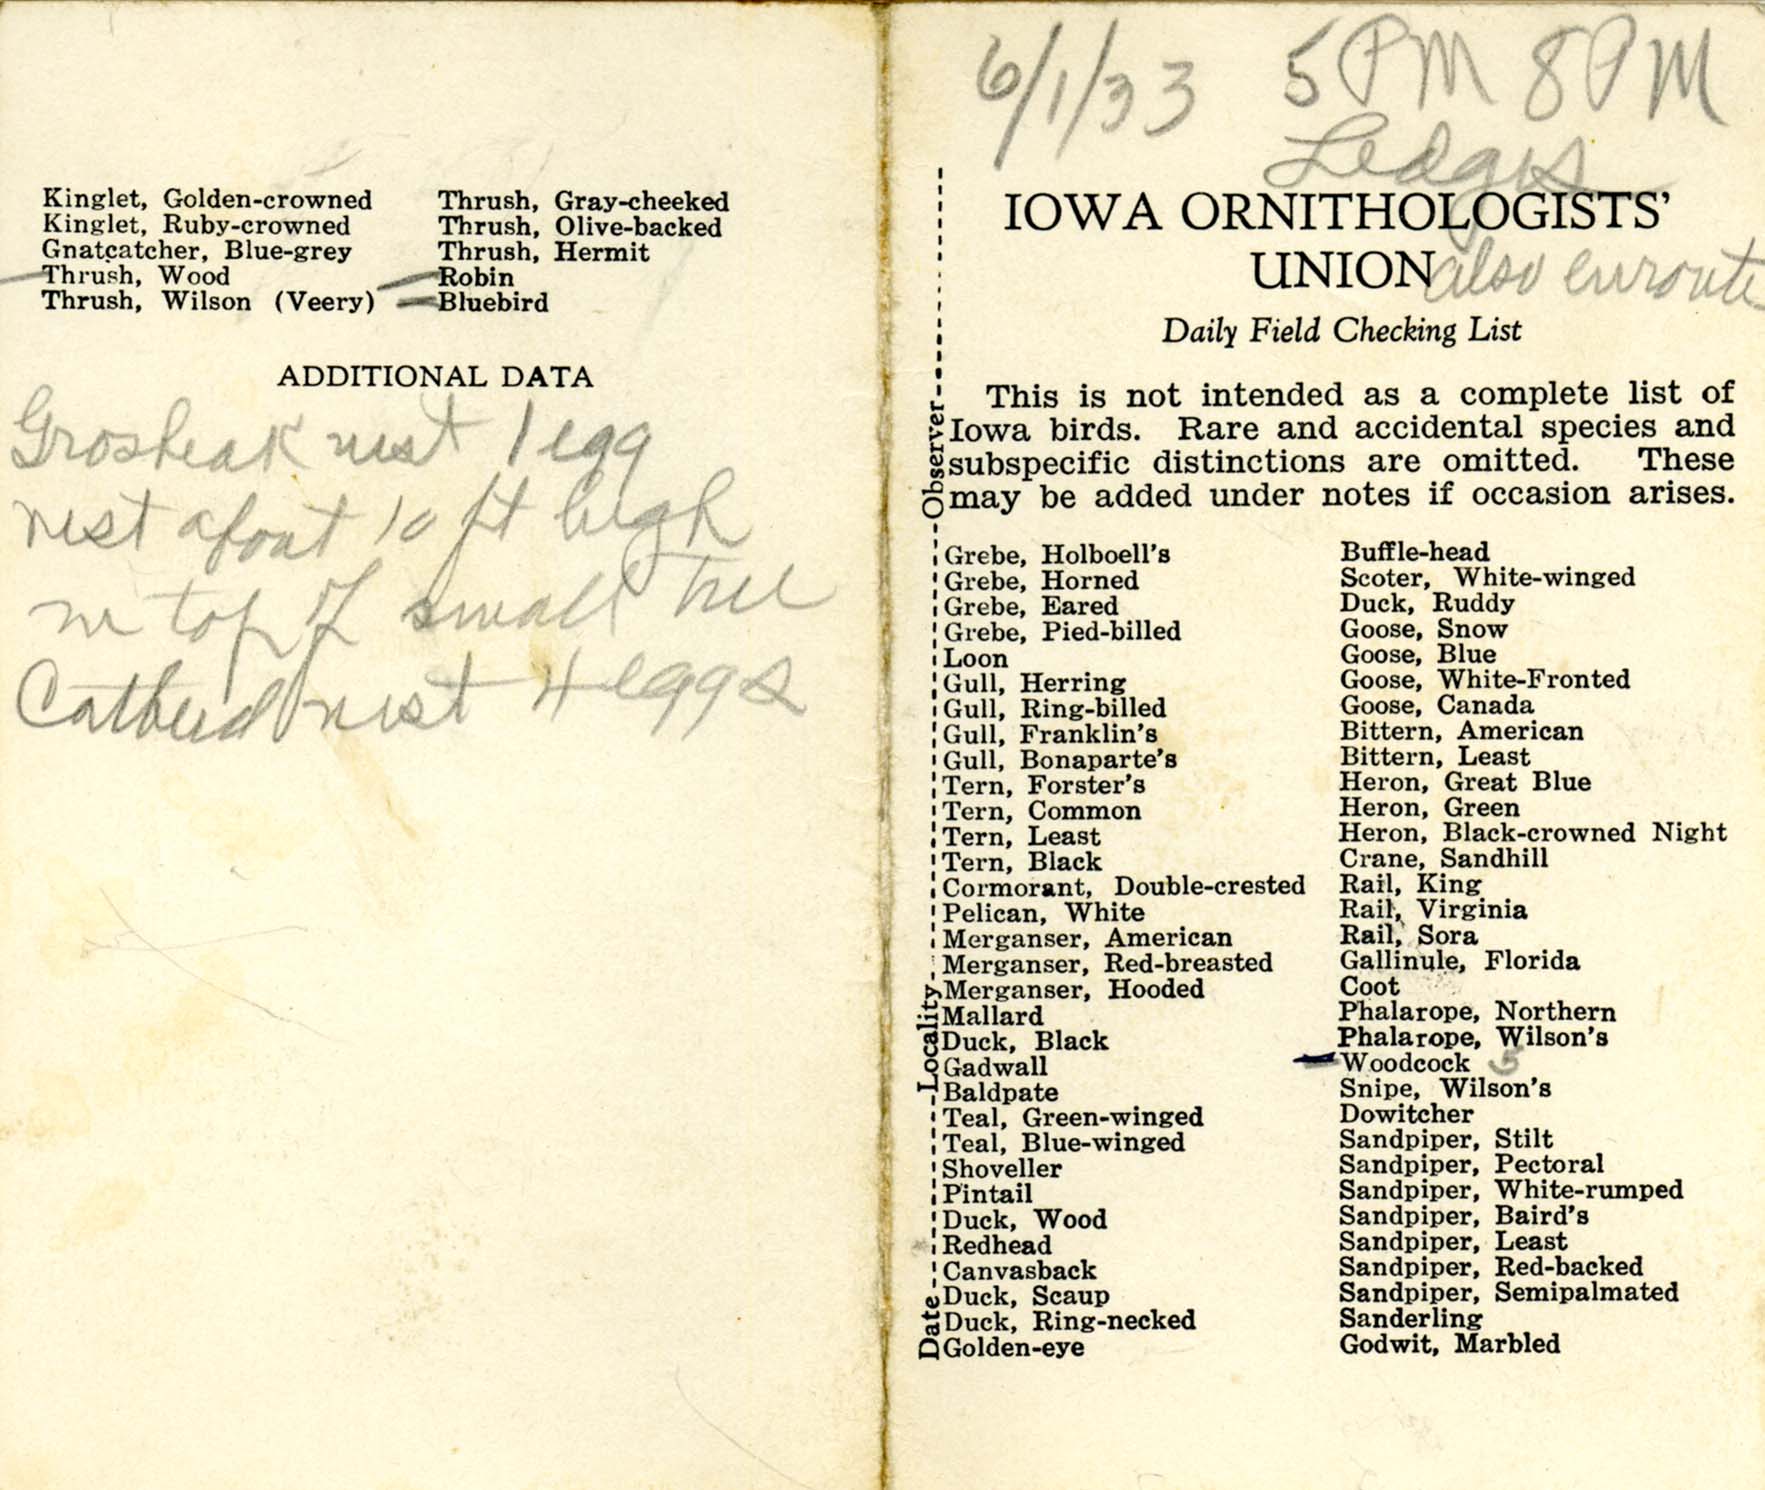 Kinglet, Golden-crowned
Kinglet, Ruby-crowned
Gnatcatcher, Blue-grey
Thrush, Wood
Thrush, Wilson (Veery)
Thrush, Gray-cheeked
Thrush, Olive-backed
Thrush, Hermit
Robin
Bluebird
ADDITIONAL DATA
Grosbeak nest 1 egg
nest about 10 ft high
in top of small tree
Catbird nest 4 eggs
6/1/33 5 PM 8 PM
Ledges
IOWA ORNITHOLOGISTS'
UNION
also enroute
Daily Field Checking List
This is not intended as a complete list of
Iowa birds. Rare and accidental species and
subspecific distinctions are omitted. These
may be added under notes if occasion arises.
Date Locality Observer
Grebe, Holboell's
Grebe, Horned
Grebe, Eared
Grebe, Pied-billed
Loon
Gull, Herring
Gull, Ring-billed
Gull, Franklin's
Gull, Bonaparte's
Tern, Forster's
Tern, Common
Tern, Least
Tern, Black
Cormorant, Double-crested
Pelican, White
Merganser, American
Merganser, Red-breasted
Merganser, Hooded
Mallard
Duck, Black
Gadwall
Baldpate
Teal, Green-winged
Teal, Blue-winged
Shoveller
Pintail
Duck, Wood
Redhead
Canvasback
Duck, Scaup
Duck, Ring-necked
Golden-eye
Buffle-head
Scoter, White-winged
Duck, Ruddy
Goose, Snow
Goose, Blue
Goose, White-Fronted
Goose, Canada
Bittern, American
Bittern, Least
Heron, Great Blue
Heron, Green
Heron, Black-crowned Night
Crane, Sandhill
Rail, King
Rail, Virginia
Rail, Sora
Gallinule, Florida
Coot
Phalarope, Northern
Phalarope, Wilson's
Woodcock 5
Snipe, Wilson's
Dowitcher
Sandpiper, Stilt
Sandpiper, Pectoral
Sandpiper, White-rumped
Sandpiper, Baird's
Sandpiper, Least
Sandpiper, Red-backed
Sandpiper, Semipalmated
Sanderling
Godwit, Marbled